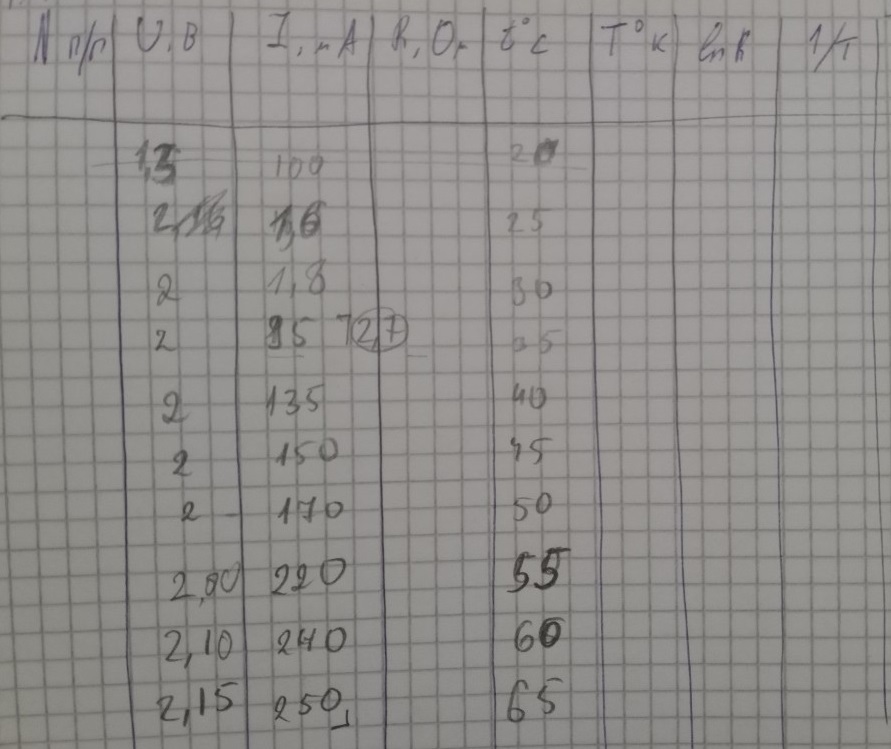 N п/п U, В I, мА R, Ом t°C T°K ln R 1/T
1,3 100 20
2, 1,6 25
2 1,8 30
2 95 2,7 35
2 135 40
2 150 45
2 170 50
2,00 220 55
2,10 240 60
2,15 250 65